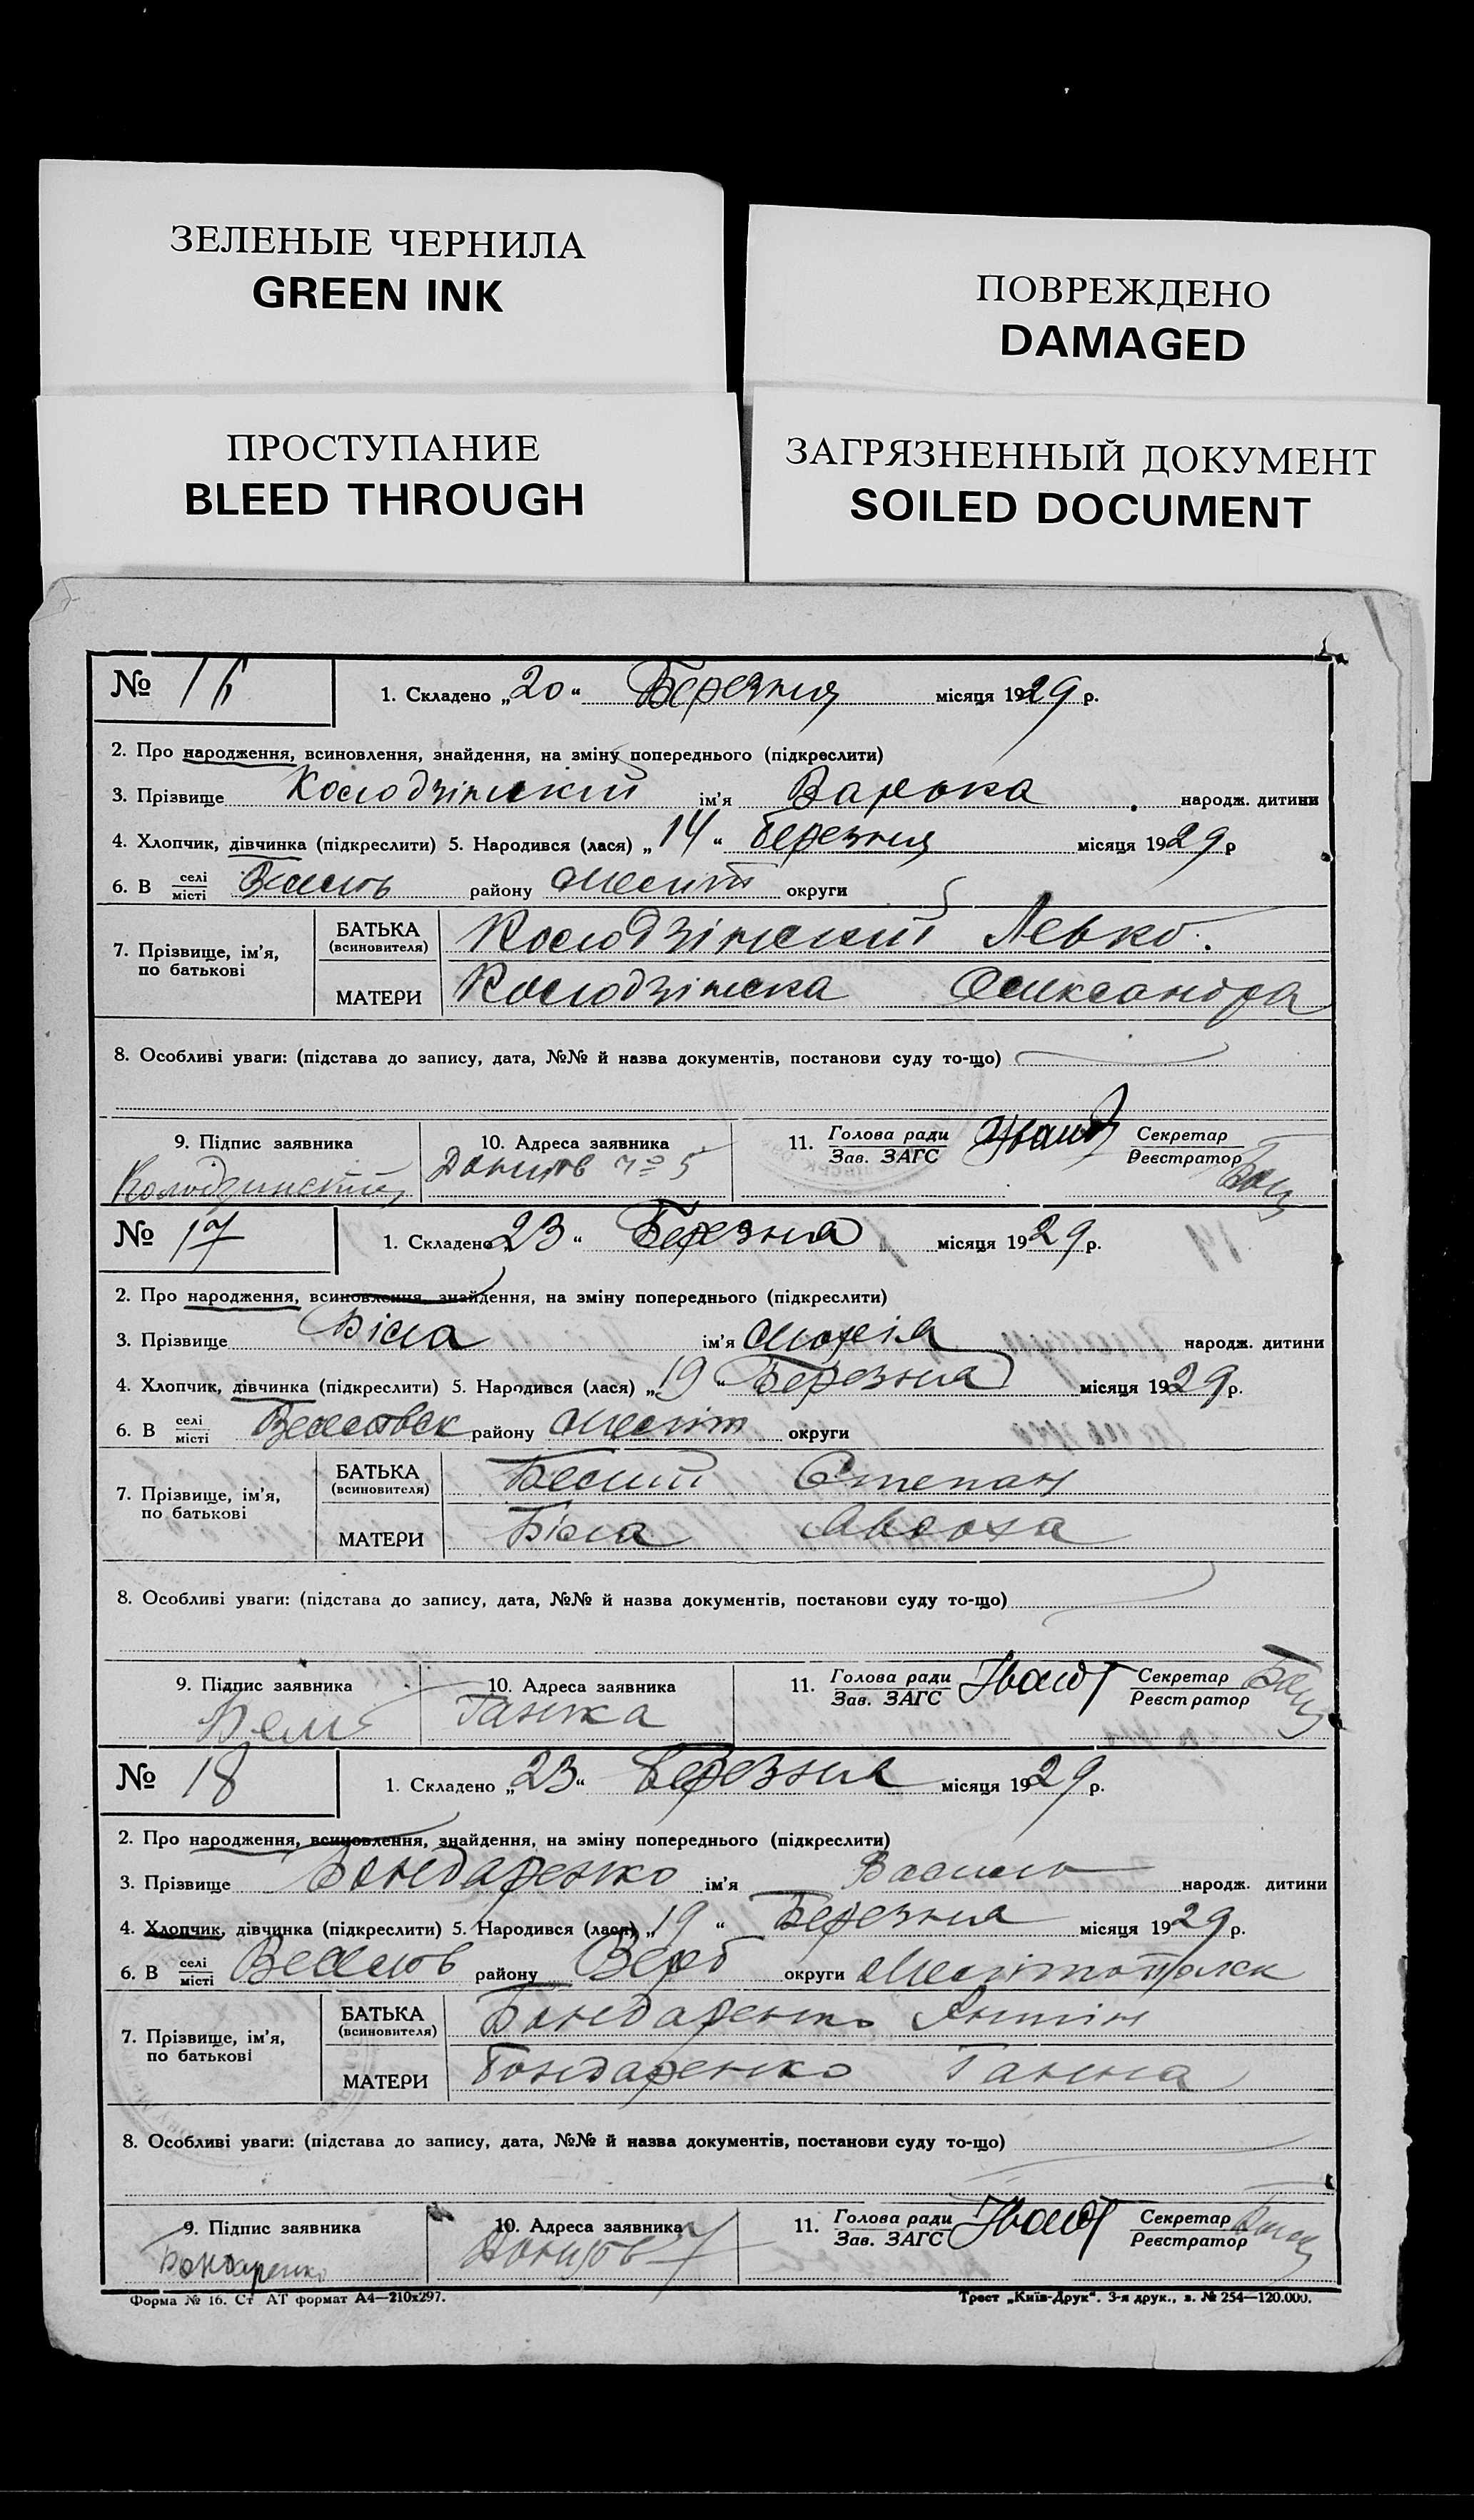 ЗЕЛЕНЫЕ ЧЕРНИЛА
GREEN INK
ПОВРЕЖДЕНО
DAMAGED
ПРОСТУПАНИЕ
BLEED THROUGH
ЗАГРЯЗНЕННЫЙ ДОКУМЕНТ
SOILED DOCUMENT
№ 16
1. Складено „20“ Березня місяця 1929 р.
2. Про народження, всиновлення, знайдення, на зміну попереднього (підкреслити)
3. Прізвище Колодзінский ім'я Варька народж. дитини
4. Хлопчик, дівчинка (підкреслити) 5. Народився (лася) „14“ Березня місяця 1929 р
6. В селі місті району Меліт округи
7. Прізвище, ім'я, по батькові
БАТЬКА (всиновителя) Колодзінский Левко.
МАТЕРИ Колодзінска Олександра
8. Особливі уваги: (підстава до запису, дата, №№ й назва документів, постанови суду то-що)
9. Підпис заявника
10. Адреса заявника
11. Голова ради Зав. ЗАГС
Секретар Реєстратор
Колодзинский
№ 5
№ 17
1. Складено „23“ Березня місяця 1929 р.
2. Про народження, всиновлення, знайдення, на зміну попереднього (підкреслити)
3. Прізвище Біла ім'я Марія народж. дитини
4. Хлопчик, дівчинка (підкреслити) 5. Народився (лася) „19“ Березня місяця 1929 р.
6. В селі місті Веселовск району Меліт округи
7. Прізвище, ім'я, по батькові
БАТЬКА (всиновителя) Белий Степан
МАТЕРИ Біла
8. Особливі уваги: (підстава до запису, дата, №№ й назва документів, постанови суду то-що)
9. Підпис заявника
10. Адреса заявника
11. Голова ради Зав. ЗАГС
Секретар Реєстратор
№ 18
1. Складено „23“ Березня місяця 1929 р.
2. Про народження, всиновлення, знайдення, на зміну попереднього (підкреслити)
3. Прізвище Бондаренко ім'я Василь народж. дитини
4. Хлопчик, дівчинка (підкреслити) 5. Народився (лася) „19“ Березня місяця 1929 р.
6. В селі місті Веселов району округи
7. Прізвище, ім'я, по батькові
БАТЬКА (всиновителя) Бондаренко Антін
МАТЕРИ Бондаренко Ганна
8. Особливі уваги: (підстава до запису, дата, №№ й назва документів, постанови суду то-що)
9. Підпис заявника
10. Адреса заявника
11. Голова ради Зав. ЗАГС
Секретар Реєстратор
Бондаренко
Форма № 16. Ст АТ формат А4—210х297.
Трест „Київ-Друк“. 3-я друк., з. № 254—120.000.